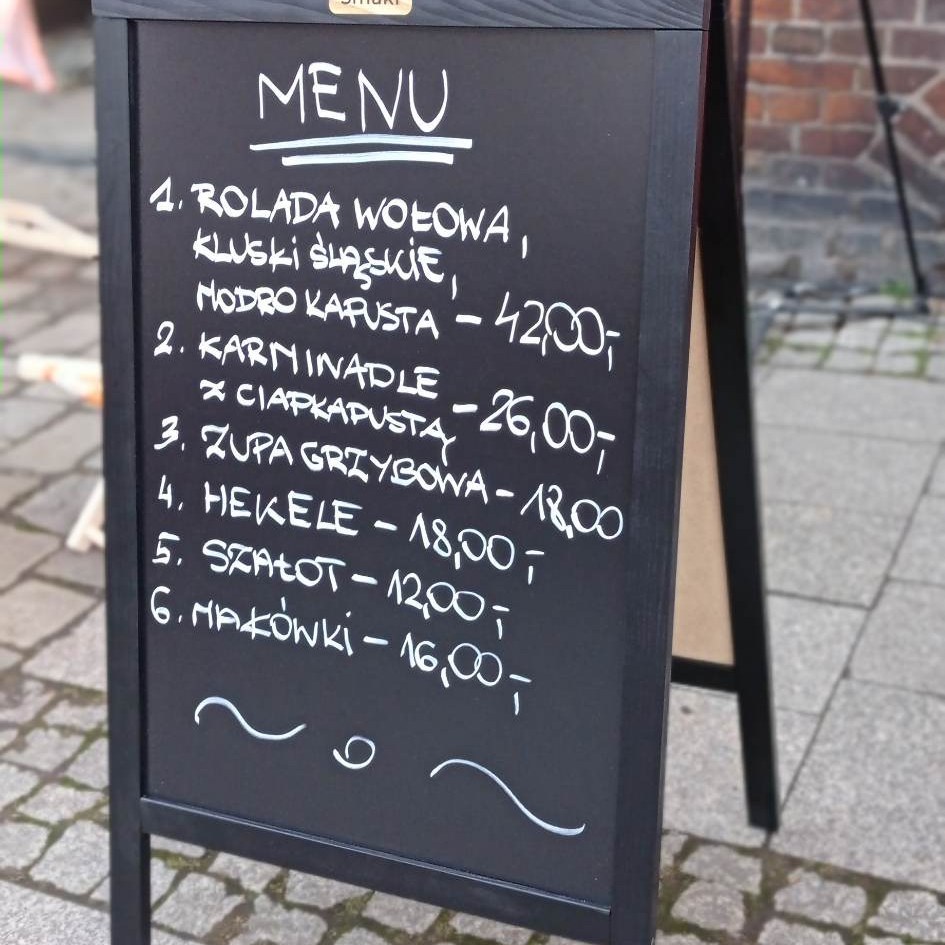 smaki
MENU
1. ROLADA WOŁOWA,
KLUSKi ŚLĄSKiE,
MODRO KAPUSTA - 42,00,-
2. KARMINADLE
Z CIAPKAPUSTĄ - 26,00,-
3. ZUPA GRZYBOWA - 18,00
4. HEKELE - 18,00,-
5. SZAŁOT - 12,00,-
6. MAKÓWKi - 16,00,-